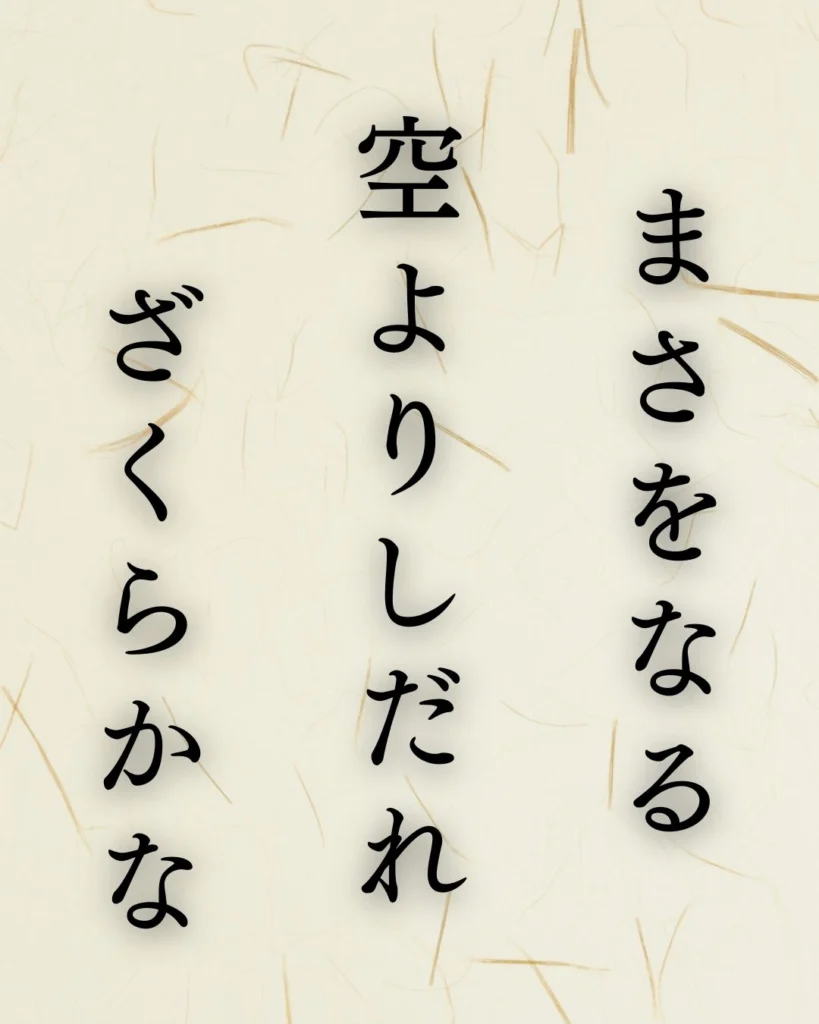 まさをなる
空よりしだれ
ざくらかな